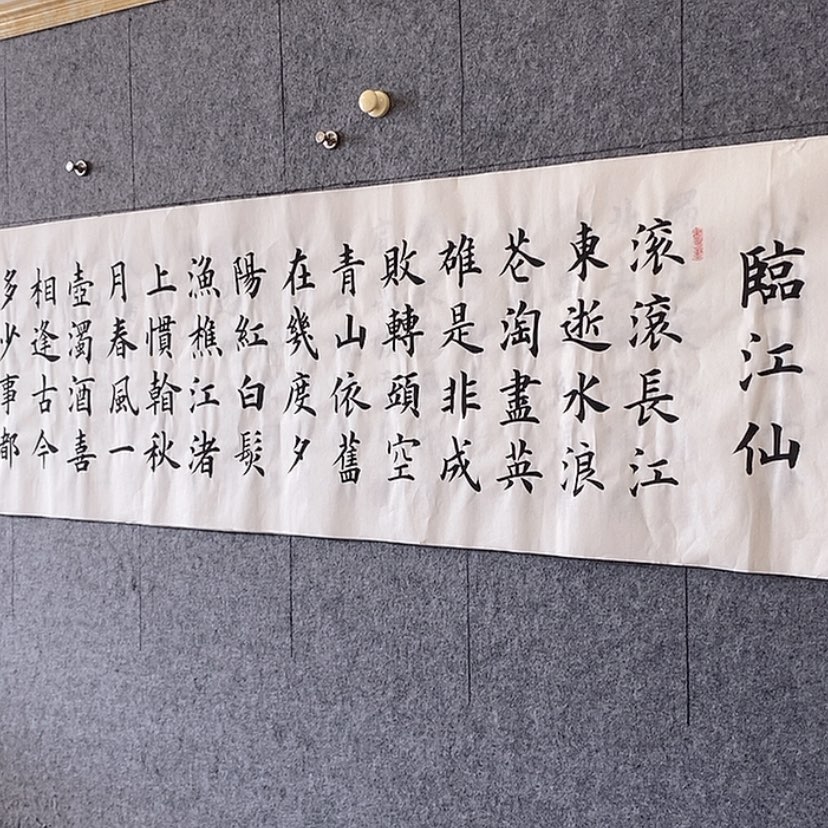 臨江仙
滚滚長江
東逝水浪
苍淘盡英
雄是非成
敗轉頭空
青山依舊
在幾度夕
陽紅白髮
漁樵江渚
上慣翰秋
月春風一
壺濁酒喜
相逢古今
多少事都